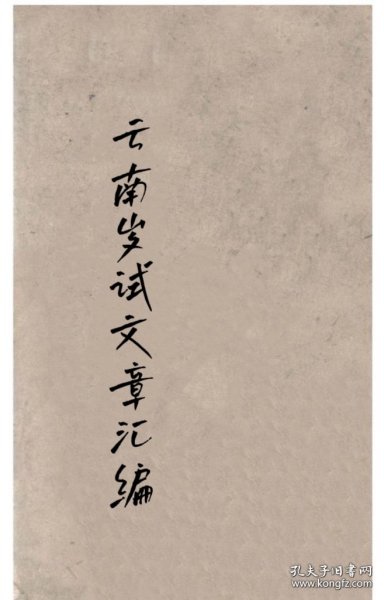 云南岁试文章汇编
孔夫子旧书网
www.kongfz.com